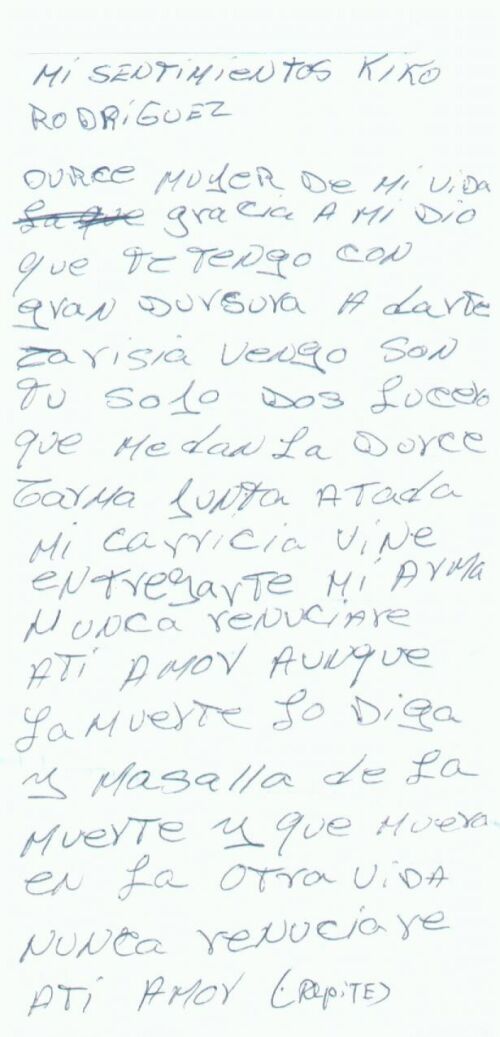 MI SENTIMIENTOS KIKO
RODRIGUEZ
DURCE MUJER De Mi ViDA
gracia A MI DIO
que TE TENgO CON
gran DURSURA A darTE
carisia VeNgO SON
TU SOlO DOS LUCERO
que Me dan La DURCE
Carma JUNTA ATADA
Mi Carricia ViNe
eNTregarTe Mi ArMA
NUNCA reNUCiAre
ATi AMOr AUNque
La MuerTe LO Diga
y Masalla de La
MUerTe y que Muera
eN La OTra ViDA
NUNCA reNUCiAre
ATi AMOr (RepiTE)